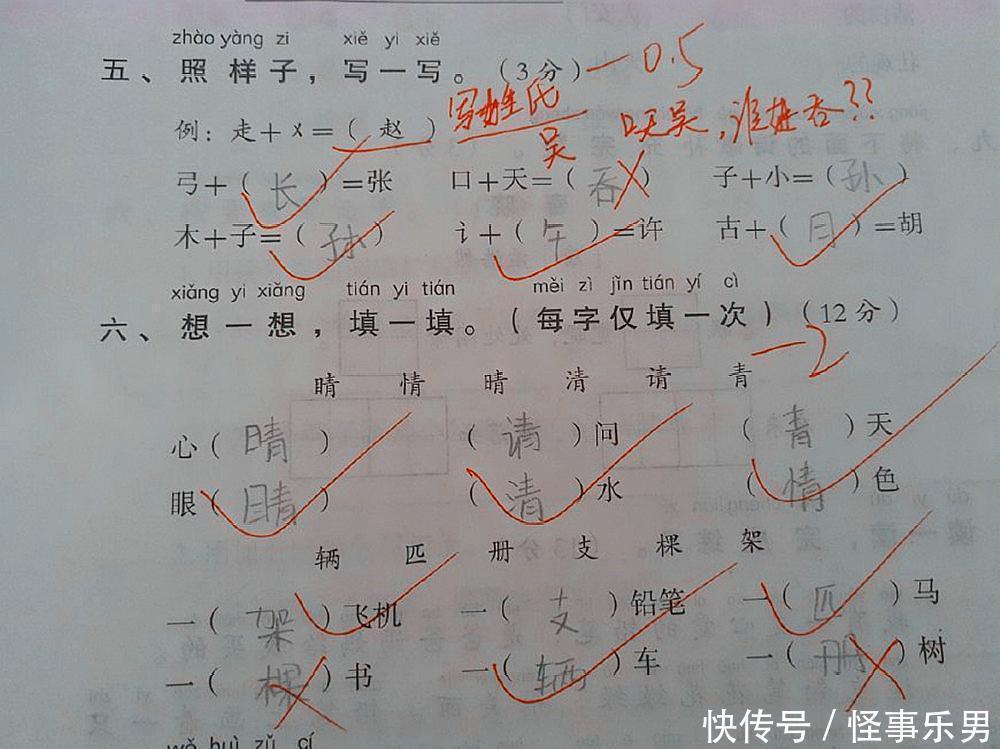 zhào yàng zi xiě yi xiě
五、照样子，写一写。（3分）—0.5
写姓氏
例：走+㐅=（赵） 吴 口天吴，谁姓吞??
弓+（长）=张 口+天=（吞） 子+小=（孙）
木+子=（孙） 讠+（午）=许 古+（月）=胡
xiǎng yi xiǎng tián yi tián měi zì jǐn tián yí cì
六、想一想，填一填。（每字仅填一次）（12分）
—2
睛 情 晴 清 请 青
心（晴） （请）问 （青）天
眼（睛） （清）水 （情）色
辆 匹 册 支 棵 架
一（架）飞机 一（支）铅笔 一（匹）马
一（棵）书 一（辆）车 一（册）树
wǒ huì zǔ cí
快传号／怪事乐男